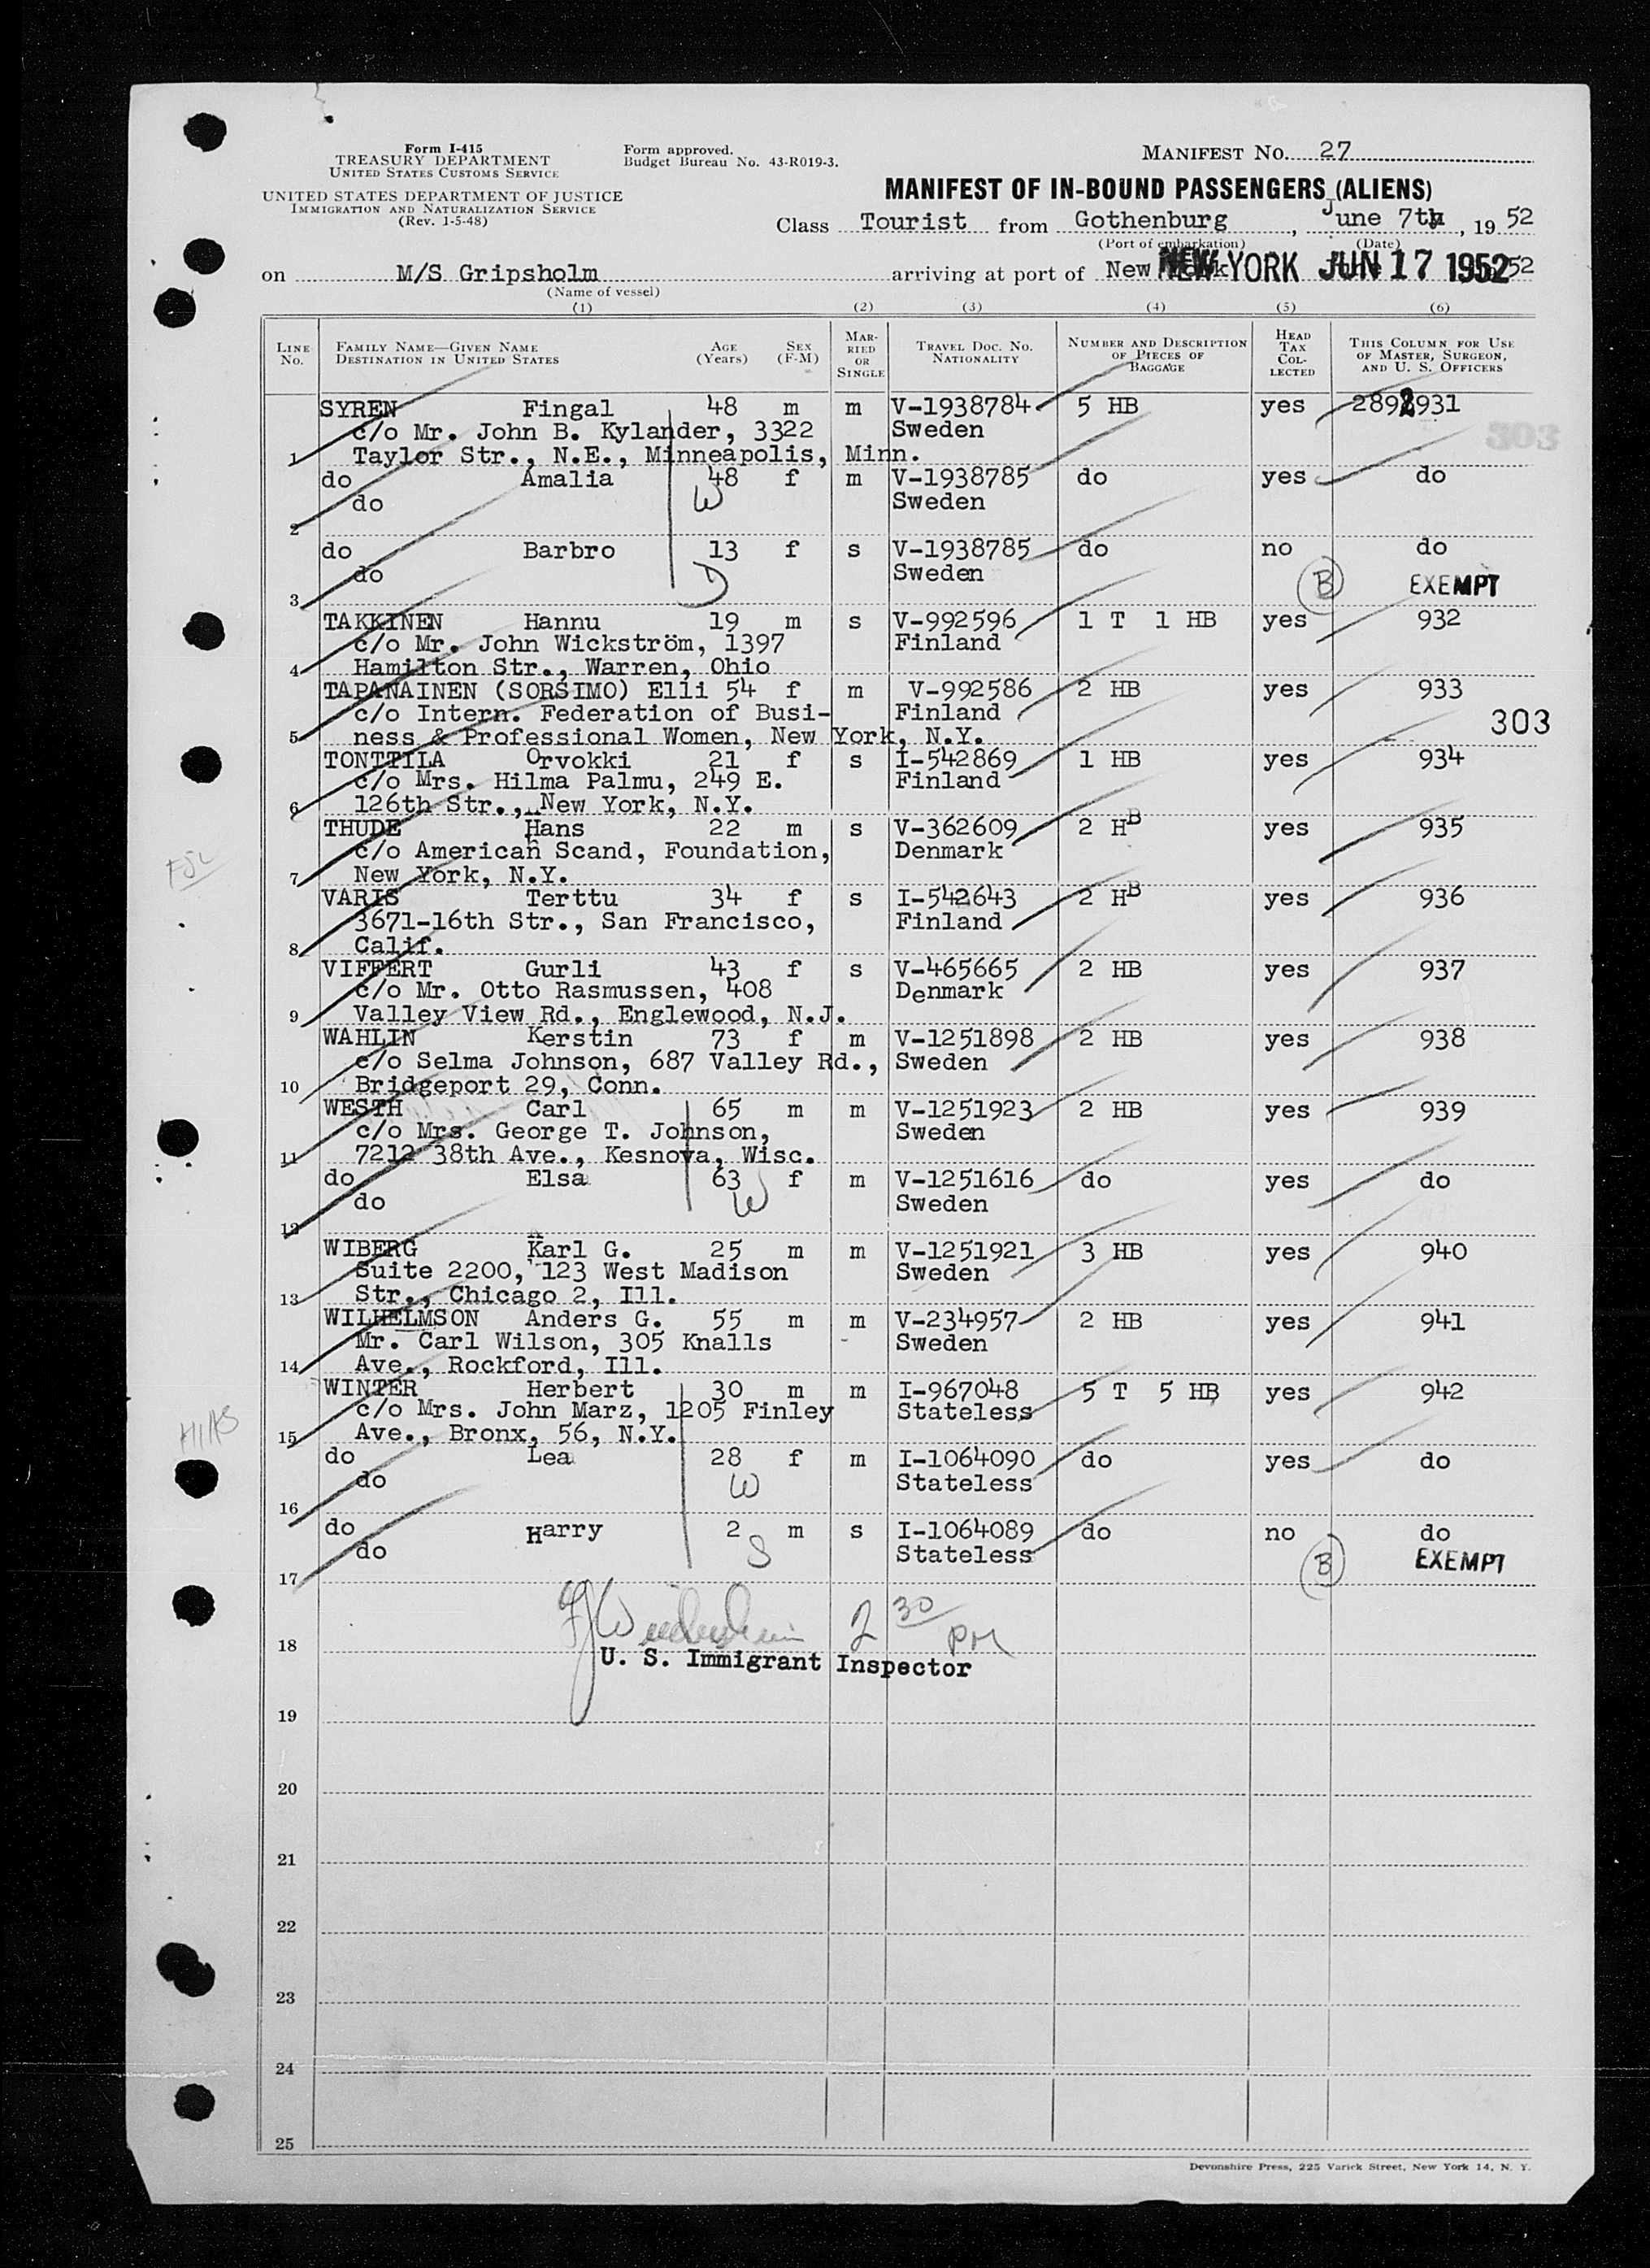 Form I-415
TREASURY DEPARTMENT
UNITED STATES CUSTOMS SERVICE
UNITED STATES DEPARTMENT OF JUSTICE
IMMIGRATION AND NATURALIZATION SERVICE
(Rev. 1-5-48)
Form approved.
Budget Bureau No. 43-R019-3.
MANIFEST No. 27
MANIFEST OF IN-BOUND PASSENGERS (ALIENS)
Class Tourist from Gothenburg, June 7th, 1952
(Port of embarkation) (Date)
on M/S Gripsholm arriving at port of New York NEW YORK JUN 17 1952 52
(Name of vessel)
(1) (2) (3) (4) (5) (6)
LINE No. FAMILY NAME—GIVEN NAME DESTINATION IN UNITED STATES AGE (Years) SEX (F-M) MARRIED OR SINGLE TRAVEL DOC. NO. NATIONALITY NUMBER AND DESCRIPTION OF PIECES OF BAGGAGE HEAD TAX COLLECTED THIS COLUMN FOR USE OF MASTER, SURGEON, AND U. S. OFFICERS
SYREN Fingal 48 m m V-1938784 5 HB yes 2892931
c/o Mr. John B. Kylander, 3322 Sweden
303
1 Taylor Str., N.E., Minneapolis, Minn.
do Amalia 48 f m V-1938785 do yes do
do W Sweden
2
do Barbro 13 f s V-1938785 do no do
do D Sweden B EXEMPT
3
TAKKINEN Hannu 19 m s V-992596 1 T 1 HB yes 932
c/o Mr. John Wickström, 1397 Finland
4 Hamilton Str., Warren, Ohio
TAPANAINEN (SORSIMO) Elli 54 f m V-992586 2 HB yes 933
c/o Intern. Federation of Busi- Finland
303
5 ness & Professional Women, New York, N.Y.
TONTTILA Orvokki 21 f s I-542869 1 HB yes 934
c/o Mrs. Hilma Palmu, 249 E. Finland
6 126th Str., New York, N.Y.
THUDE Hans 22 m s V-362609 2 HB yes 935
c/o American Scand, Foundation, Denmark
7 New York, N.Y.
VARIS Terttu 34 f s I-542643 2 HB yes 936
3671-16th Str., San Francisco, Finland
8 Calif.
VIFFERT Gurli 43 f s V-465665 2 HB yes 937
c/o Mr. Otto Rasmussen, 408 Denmark
9 Valley View Rd., Englewood, N.J.
WAHLIN Kerstin 73 f m V-1251898 2 HB yes 938
c/o Selma Johnson, 687 Valley Rd., Sweden
10 Bridgeport 29, Conn.
WESTH Carl 65 m m V-1251923 2 HB yes 939
c/o Mrs. George T. Johnson, Sweden
11 7212 38th Ave., Kesnova, Wisc.
do Elsa 63 f m V-1251616 do yes do
do W Sweden
12
WIBERG Karl G. 25 m m V-1251921 3 HB yes 940
Suite 2200, 123 West Madison Sweden
13 Str., Chicago 2, Ill.
WILHELMSON Anders G. 55 m m V-234957 2 HB yes 941
Mr. Carl Wilson, 305 Knalls Sweden
14 Ave., Rockford, Ill.
WINTER Herbert 30 m m I-967048 5 T 5 HB yes 942
c/o Mrs. John Marz, 1205 Finley Stateless
HIAS
15 Ave., Bronx, 56, N.Y.
do Lea 28 f m I-1064090 do yes do
do W Stateless
16
do Harry 2 m s I-1064089 do no do
do S Stateless B EXEMPT
17
2 30 PM
18
U. S. Immigrant Inspector
19
20
21
22
23
24
25
Devonshire Press, 225 Varick Street, New York 14, N. Y.